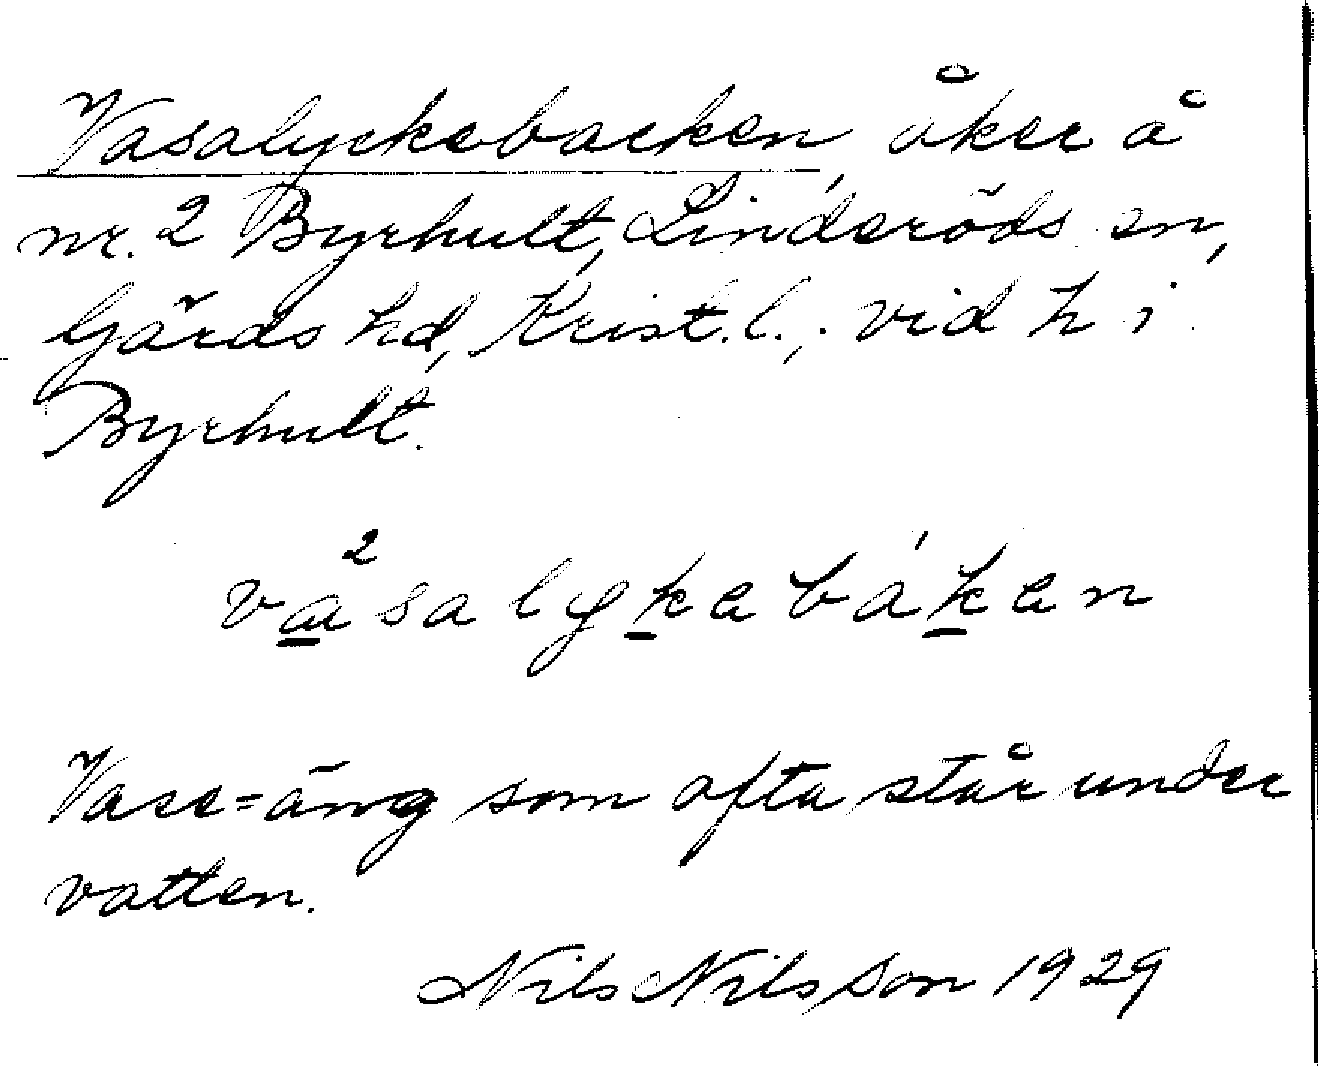 Vasalyckebacken, åker å
nr. 2 Byrhult, Linderöds sn,
Gärds hd, Krist. l., vid h i
Byrhult.
va²salykebáken
Vase=äng som ofta står under
vatten.
Nils Nilsson 1929